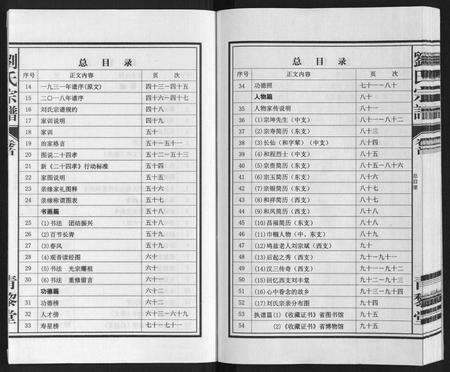 劉氏宗譜
卷首
青黎堂
总目录
序号 正文内容 页次
14 一九三一年谱序(原文) 四十三—四十五
15 二〇一八年谱序 四十六—四十七
16 刘氏宗谱规约 四十八
17 家训说明 四十九
18 家训 五十
19 治家格言 五十—五十一
20 图说二十四孝 五十二—五十三
21 新《二十四孝》行动标准 五十四
22 家图说明 五十五
23 亲缘家礼图释 五十六
24 亲缘称谓图表 五十七
书画篇 五十八
25 (1)书法 团结振兴 五十九
26 (2)百节长青 五十九
27 (3)春风 五十九
28 (4)观音读经图 六十
29 (5)书法 光宗耀祖 六十一
30 (6)书法 重修留言 六十一
功德篇 六十二
31 功德榜 六十二
32 人才榜 六十三—六十九
33 寿星榜 七十—七十一
总目录
序号 正文内容 页次
34 功德照 七十一—八十
人物篇 八十一
35 人物家传说明 八十一
36 (1)宗坤先生(中支) 八十一—八十二
37 (2)宗寿简历(东支) 八十三
38 (3)长仙(和字辈)(中支) 八十三
39 (4)和程烈士(中支) 八十四
40 (5)宗贵简历(东支) 八十五—八十六
41 (6)宗玉简历(东支) 八十六
42 (7)宗银简历(东支) 八十七
43 (8)和祥简历(西支) 八十七
44 (9)和凤简历(西支) 八十八
45 (10)昌福简历(东支) 八十八
46 (11)巾帼人物(中、东支) 八十九
47 (12)鸠兹老人刘宗斌(西支) 九十
48 (13)后起之秀(西支) 九十—九十一
49 (14)汉三传奇(西支) 九十一—九十二
50 (15)回忆西支刘丰堂 九十二
51 (16)心中眷念的故乡 九十三
52 (17)刘氏宗亲分布图 九十四
53 执谱篇(1)《收藏证书》省图书馆 九十五
54 (2)《收藏证书》省博物馆 九十五
总目录
劉氏宗譜
卷首
青黎堂